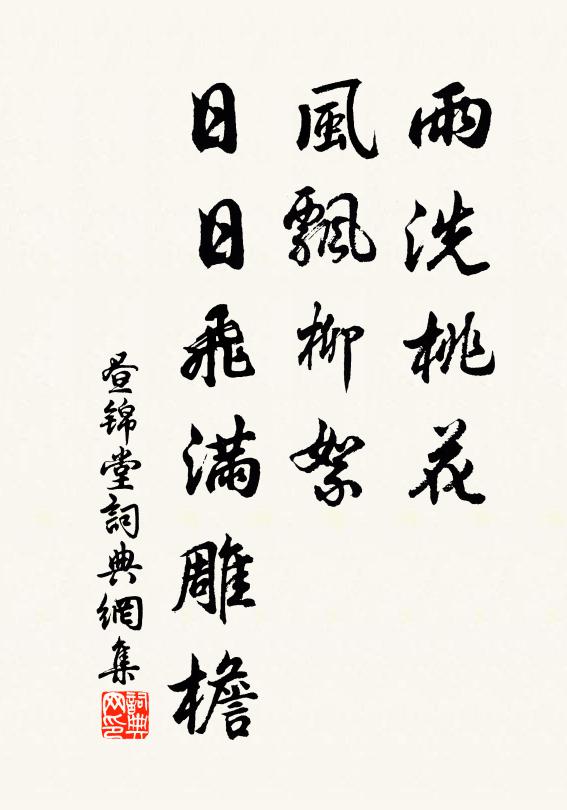 雨洗桃花
風飄柳絮
日日飛滿雕檐
昼錦堂詞典網集
詞典
网印